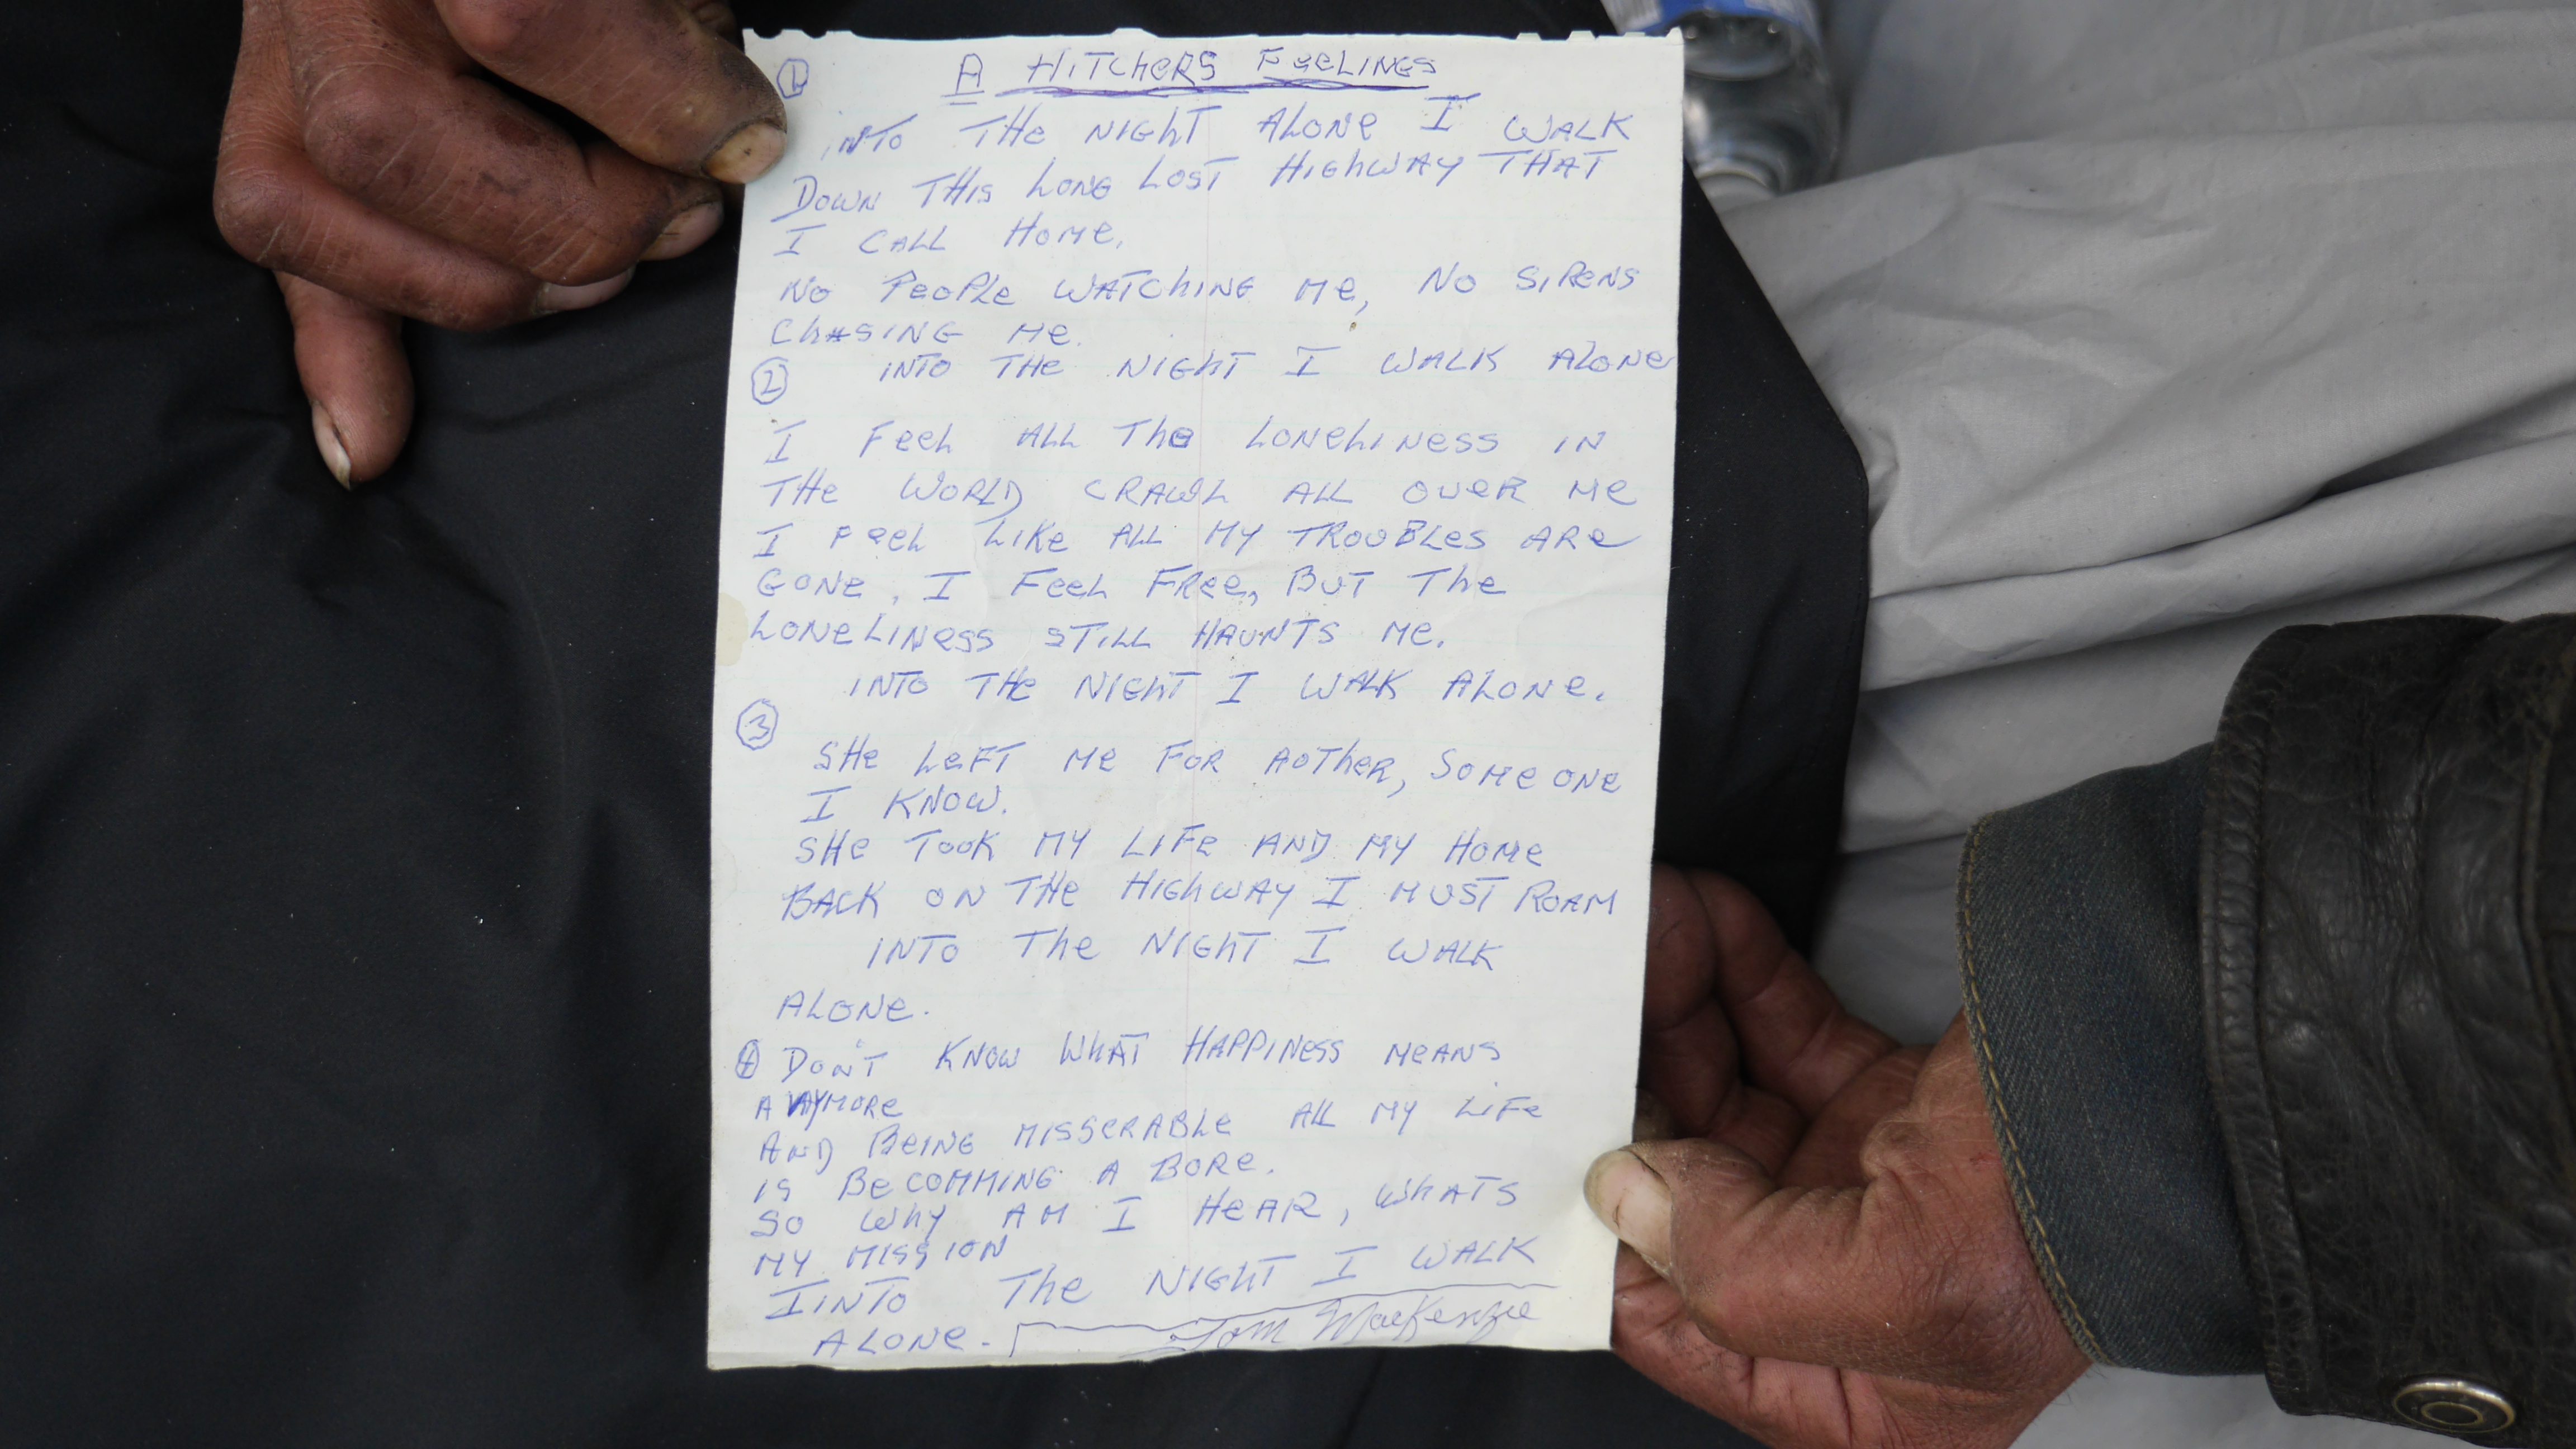 ① A HITCHERS FEELINGS
INTO THE NIGHT ALONE I WALK
DOWN THIS LONG LOST HIGHWAY THAT
I CALL HOME.
NO PEOPLE WATCHING ME, NO SIRENS
CHASING ME.
② INTO THE NIGHT I WALK ALONE
I FEEL ALL THE LONELINESS IN
THE WORLD CRAWL ALL OVER ME
I FEEL LIKE ALL MY TROUBLES ARE
GONE, I FEEL FREE, BUT THE
LONELINESS STILL HAUNTS ME.
INTO THE NIGHT I WALK ALONE.
③
SHE LEFT ME FOR AOTHER, SOME ONE
I KNOW.
SHE TOOK MY LIFE AND MY HOME
BACK ON THE HIGHWAY I MUST ROAM
INTO THE NIGHT I WALK
ALONE.
④ DON'T KNOW WHAT HAPPINESS MEANS
ANYMORE
AND BEING MISSERABLE ALL MY LIFE
IS BECOMMING A BORE.
SO WHY AM I HEAR, WHATS
MY MISSION
IINTO THE NIGHT I WALK
ALONE. Tom MacKenzie